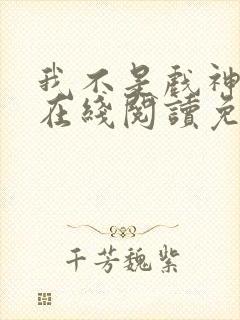 我不是戲神
在綫閱讀免
千芳魏紫